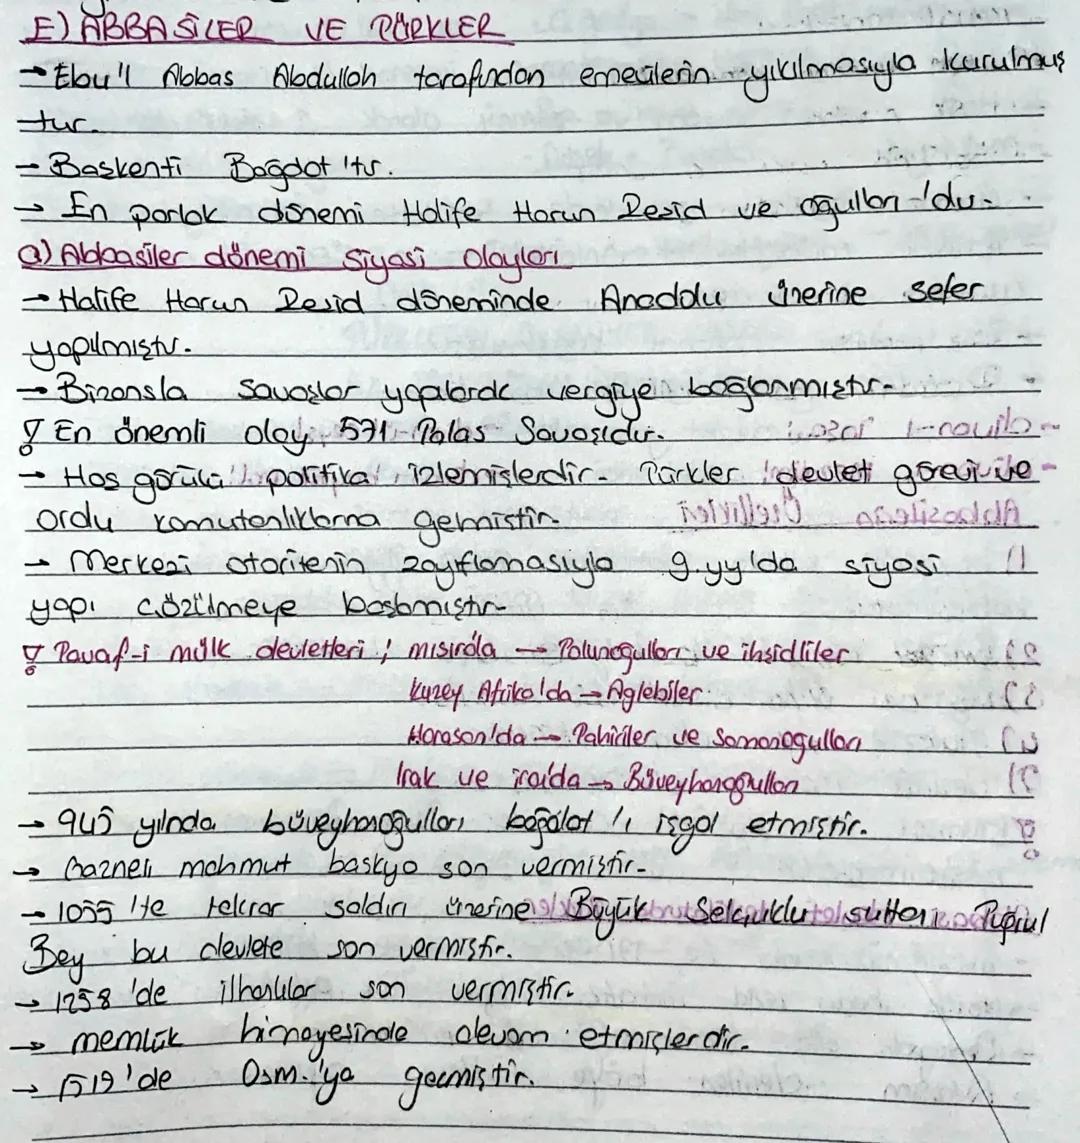 E) ABBASİLER VE TÜRKLER
→ Ebu'l Abbas Abdullah tarafından emevilerin yıkılmasıyla kurulmuş
tur.
→ Baskenti Bağdat 'tır.
→ En parlak dönemi Halife Harun Resid ve oğulları 'du.
a) Abbasiler dönemi siyasi olayları
→ Halife Harun Resid döneminde Anadolu üzerine sefer
yapılmıştır.
→ Bizansla savaşlar yapılarak vergiye bağlanmıştır.
! En önemli olay 571 Talas Savaşıdır.
→ Hoş görülü politika izlemişlerdir. Türkler devlet görevi ve
ordu komutanlıklarına gelmistir.
→ Merkezi otoritenin zayıflamasıyla 9.yy'lda siyasi
yapı çözülmeye baslamıştır.
! Tavaf-i mülk devletleri ; mısırda → Tolunoğulları ve ihsidliler
Kuzey Afrika'da → Aglebiler
Horasan'da → Tahiriler ve Samanoğulları
Irak ve iran'da → Büveyhanoğulları
→ 945 yılında büveyhanoğulları bağdat 'ı işgal etmiştir.
→ Gazneli mahmut baskıya son vermiştir.
→ 1055 'te tekrar saldırı üzerine Büyük Selçuklu sultanı Tuğrul
Bey bu devlete son vermiştir.
→ 1258 'de ilhanlılar son vermiştir.
→ memlük himayesinde devam etmişlerdir.
→ 1519 'de Osm.'ya geçmiştir.